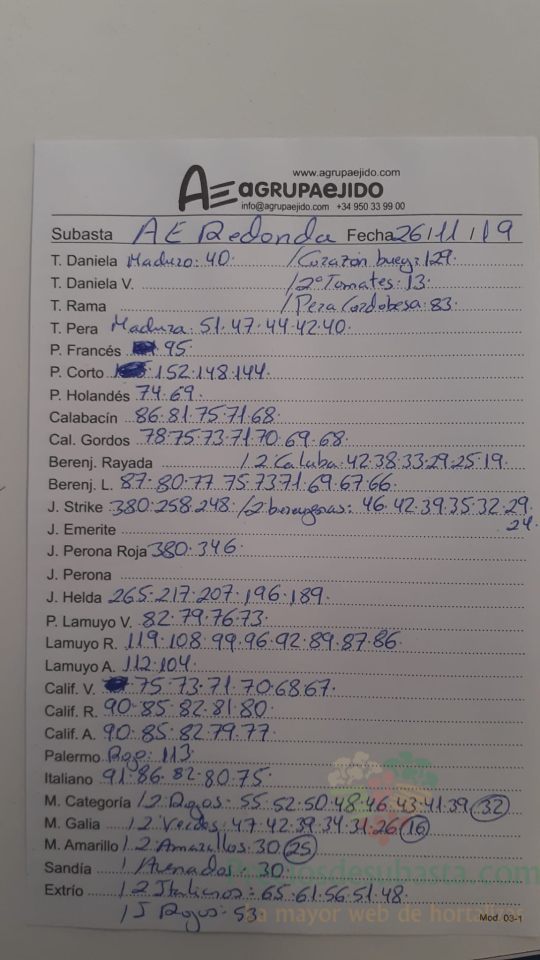 www.agrupaejido.com
AGRUPAEJIDO
info@agrupaejido.com +34 950 33 99 00
Subasta A E Redonda Fecha 26/11/19
T. Daniela Maduro: 40. / Corazón buey: 129.
T. Daniela V. / 2º Tomates: 13.
T. Rama / Pera Cordobesa: 83.
T. Pera Madura: 51.47.44.42.40.
P. Francés 95.
P. Corto 152.148.144.
P. Holandés 74.69.
Calabacín 86.81.75.71.68.
Cal. Gordos 78.75.73.71.70.69.68.
Berenj. Rayada / 2 Calaba: 42.38.33.29.25.19.
Berenj. L. 87.80.77.75.73.71.69.67.66.
J. Strike 380.258.248. / 2 berengenas: 46.42.39.35.32.29.
24.
J. Emerite
J. Perona Roja 380.346.
J. Perona
J. Helda 265.217.207.196.189.
P. Lamuyo V. 82.79.76.73.
Lamuyo R. 119.108.99.96.92.89.87.86.
Lamuyo A. 112.104.
Calif. V. 75.73.71.70.68.67.
Calif. R. 90.85.82.81.80.
Calif. A. 90.85.82.79.77.
Palermo Rojo: 113.
Italiano 91.86.82.80.75.
M. Categoría / 2 Rojos: 55.52.50.48.46.43.41.39.32
M. Galia / 2 Verdes: 47.42.39.34.31.26.16
M. Amarillo / 2 Amarillos: 30.25
Sandía / Asenados: 30.
Extrío / 2 Italianos: 65.61.56.51.48.
/ J Rojos: 53.
Preciosdesubasta.com
la mayor web de hortalizas
Mod. 03-1